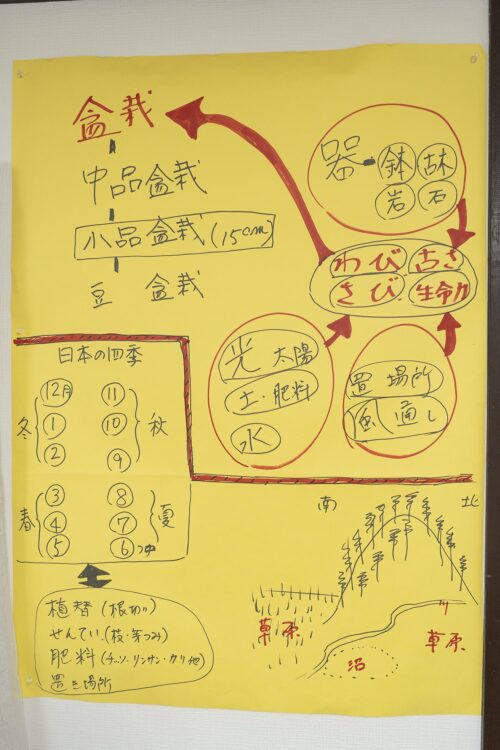 盆栽
中品盆栽
小品盆栽(15cm)
豆 盆栽
器-鉢 古木
岩 石
わび 古さ
さび 生命力
光 太陽
土・肥料
水
置場所
風通し
日本の四季
冬 12月 1 2
11 10 9 秋
春 3 4 5
8 7 6つゆ 夏
植替(根切り)
せんてい(枝・芽つみ)
肥料(チッソ・リンサン・カリ他)
置き場所
南
北
草原
沼
川
草原